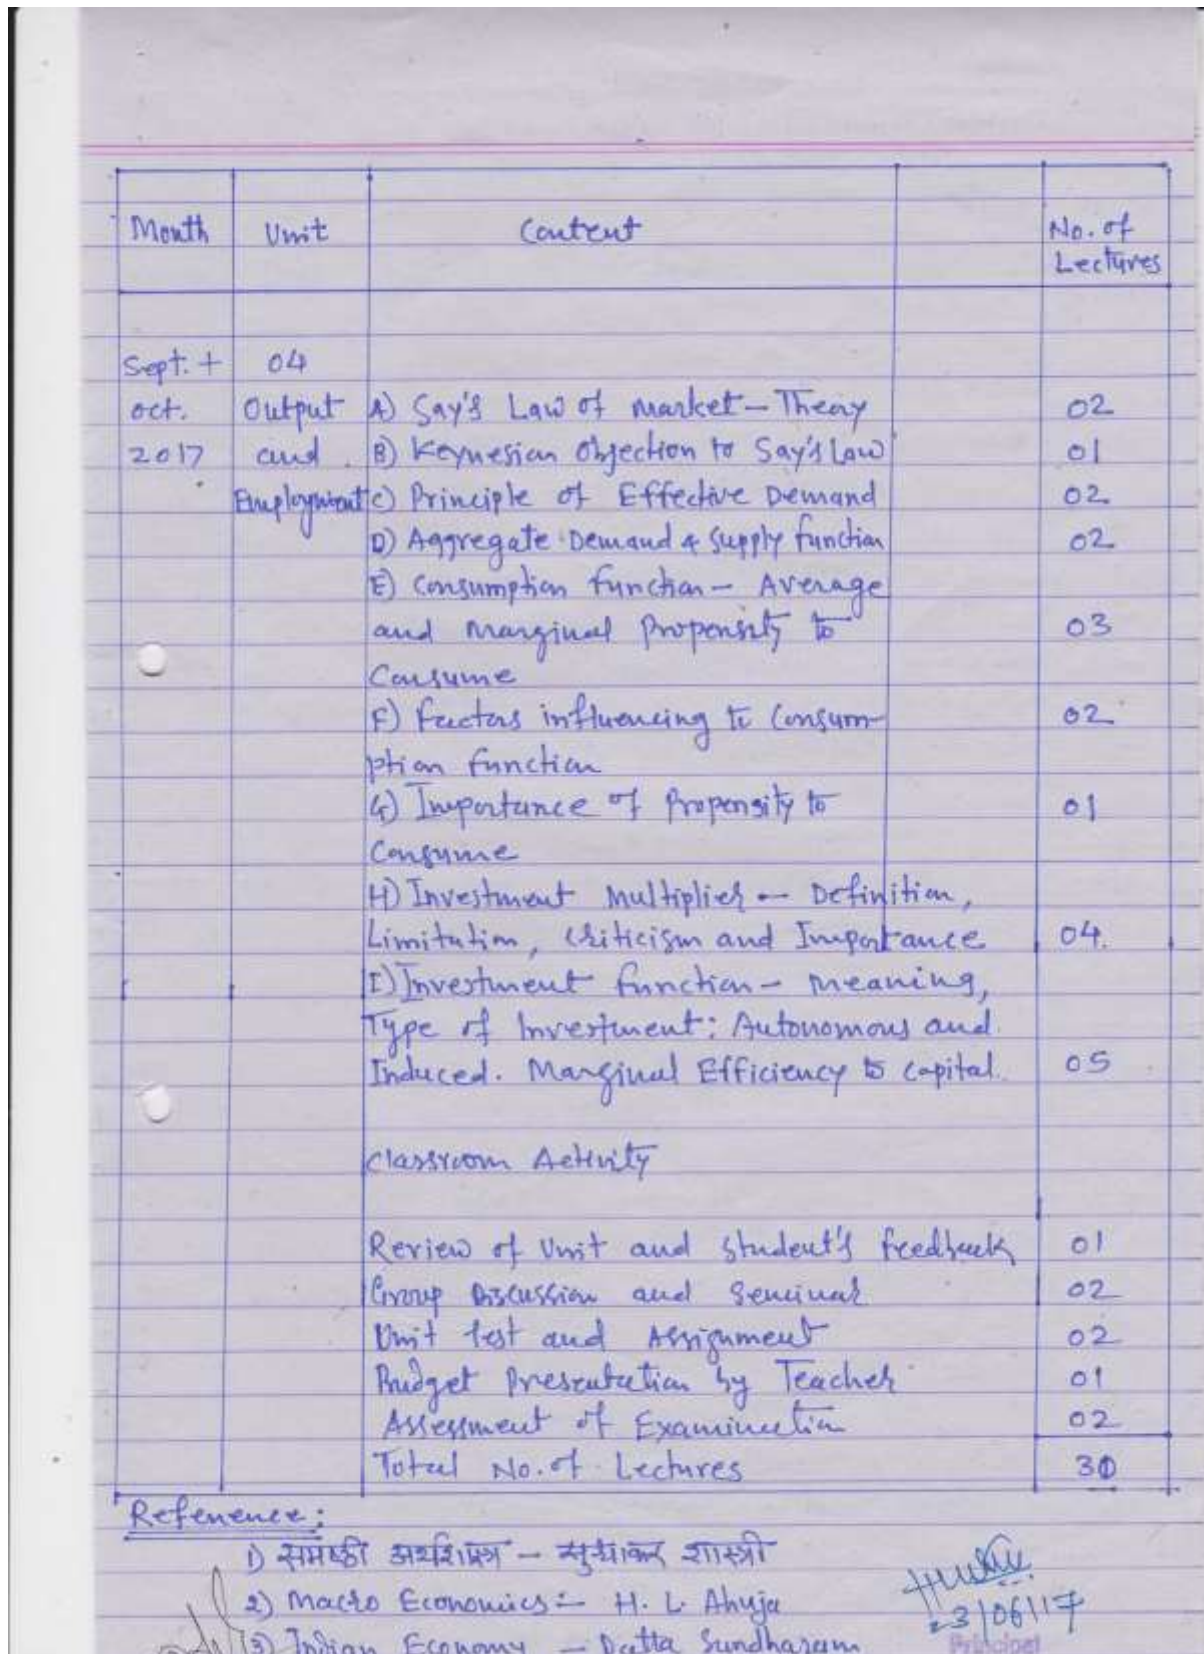 Month Unit Content No. of
Lectures
Sept. + 04
oct. Output A) Say's Law of market - Theory 02
2017 and B) Keynesian Objection to Say's Law 01
Employment C) Principle of Effective Demand 02
D) Aggregate Demand & Supply function 02
E) Consumption function - Average
and Marginal Propensity to 03
Consume
F) Factors influencing to Consum-
ption function 02
G) Importance of Propensity to 01
Consume
H) Investment Multiplier - Definition,
Limitation, Criticism and Importance 04.
I) Investment function - meaning,
Type of Investment: Autonomous and
Induced. Marginal Efficiency to capital. 05
Classroom Activity
Review of Unit and Student's feedback 01
Group Discussion and Seminar 02
Unit test and Assignment 02
Budget Presentation by Teacher 01
Assessment of Examination 02
Total No. of Lectures 30
Reference:
1) समष्ठी अर्थशास्त्र - सुधाकर शास्त्री
2) Macro Economics :- H. L. Ahuja
23/06/17
3) Indian Economy - Datta Sundharam
Principal